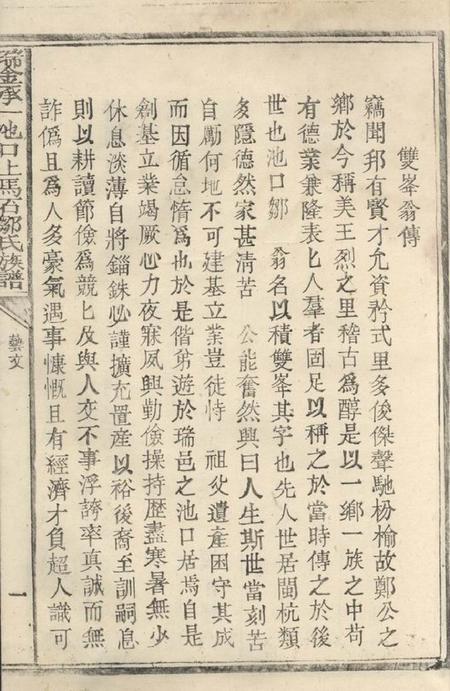 雙峯翁傳
竊聞邦有賢才允資矜式里多俊傑聲馳枌榆故鄭公之
鄉於今稱美王烈之里稽古為醇是以一鄉一族之中苟
有德業兼隆表匕人羣者固足以稱之於當時傳之於後
世也池口鄒　翁名以積雙峯其字也先人世居閩杭類
多隱德然家甚清苦　公能奮然興曰人生斯世當刻苦
自勵何地不可建基立業豈徒恃　祖父遺產困守其成
而因循怠惰為也於是偕弟遊於瑞邑之池口居焉自是
創基立業竭厥心力夜寐夙興勤儉操持歷盡寒暑無少
休息淡薄自將錙銖必謹擴充置產以裕後裔至訓嗣息
則以耕讀節儉為競匕及與人交不事浮誇率真誠而無
詐偽且為人多豪氣遇事慷慨且有經濟才負超人識可
瑞金承一池口上馬石鄒氏族譜
藝文
一